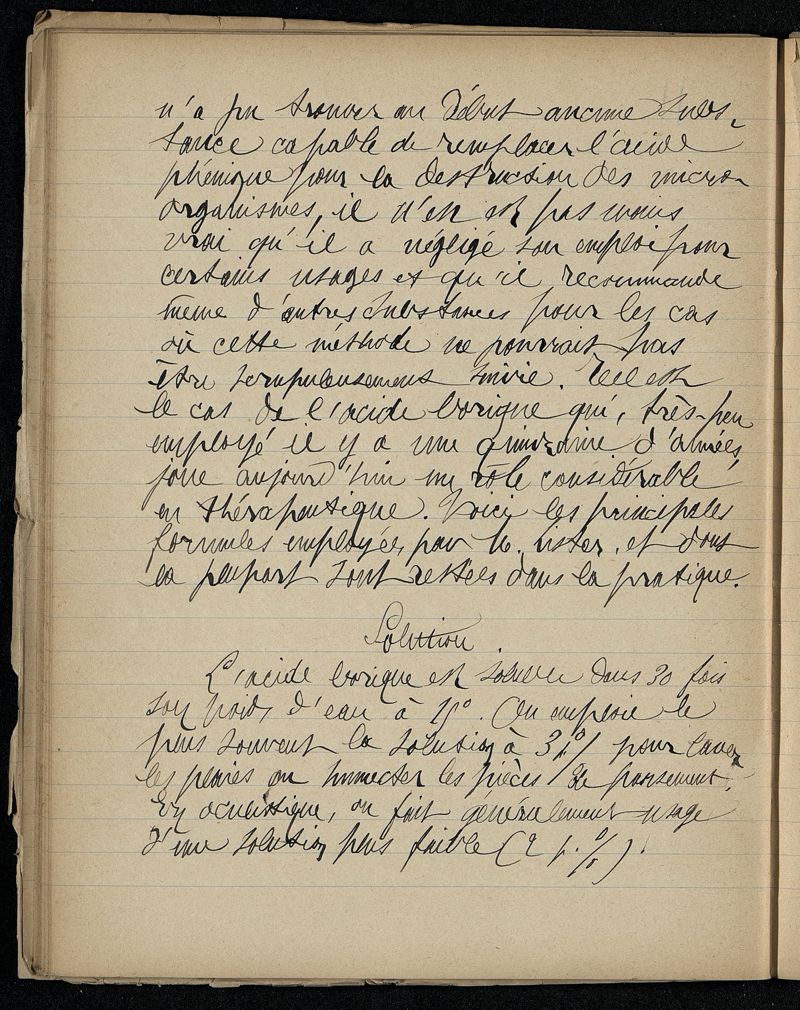 n'a pu trouver au début aucune subs-
tance capable de remplacer l'acide
phénique pour la destruction des micro-
organismes, il n'en est pas moins
vrai qu'il a négligé son emploi pour
certains usages et qu'il recommande
même d'autres substances pour les cas
où cette méthode ne pourrait pas
être scrupuleusement suivie. Tel est
le cas de l'acide borique qui, très-peu
employé il y a une quinzaine d'années,
joue aujourd'hui un rôle considérable
en thérapeutique. Voici les principales
formules employées par M. Lister, et dont
la plupart sont restées dans la pratique.
Solution.
L'acide borique est soluble dans 30 fois
son poids d'eau à 15°. On emploie le
plus souvent la solution à 3 p.% pour laver
les plaies ou humecter les pièces de pansement.
En oculistique, on fait généralement usage
d'une solution plus faible (2 p.%).